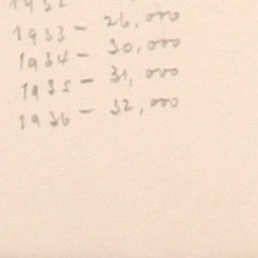 1932
1933 - 26,000
1934 - 30,000
1935 - 31,000
1936 - 32,000